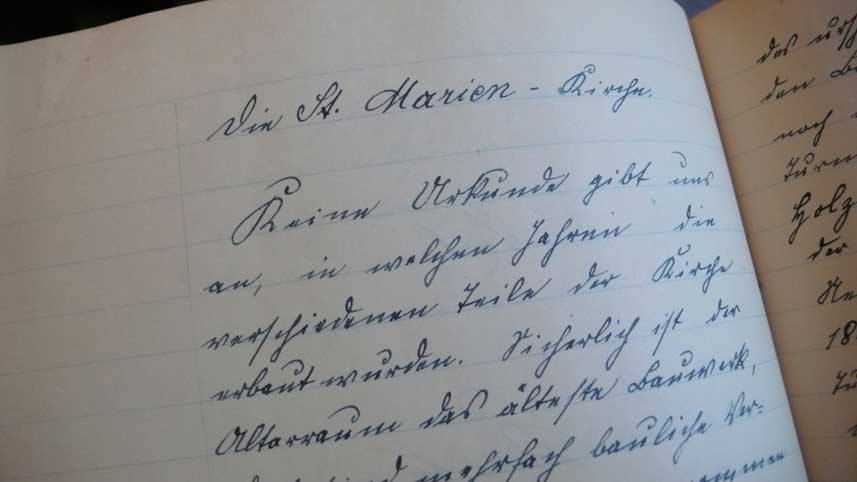 Die St. Marien - Kirche.
Keine Urkunde gibt uns
an, in welchen Jahren die
verschiedenen Teile der Kirche
erbaut wurden. Sicherlich ist der
Altarraum das älteste Bauwerk,
mehrfach bauliche Ver-
das
den
noch
Turm
Holz
der